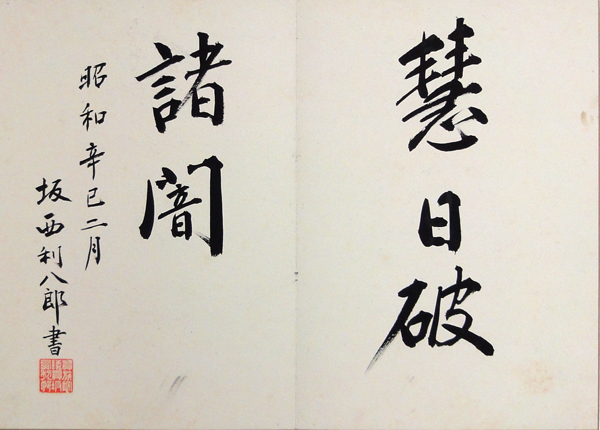 慧日破
諸闇
昭和辛巳二月
坂西利八郎書